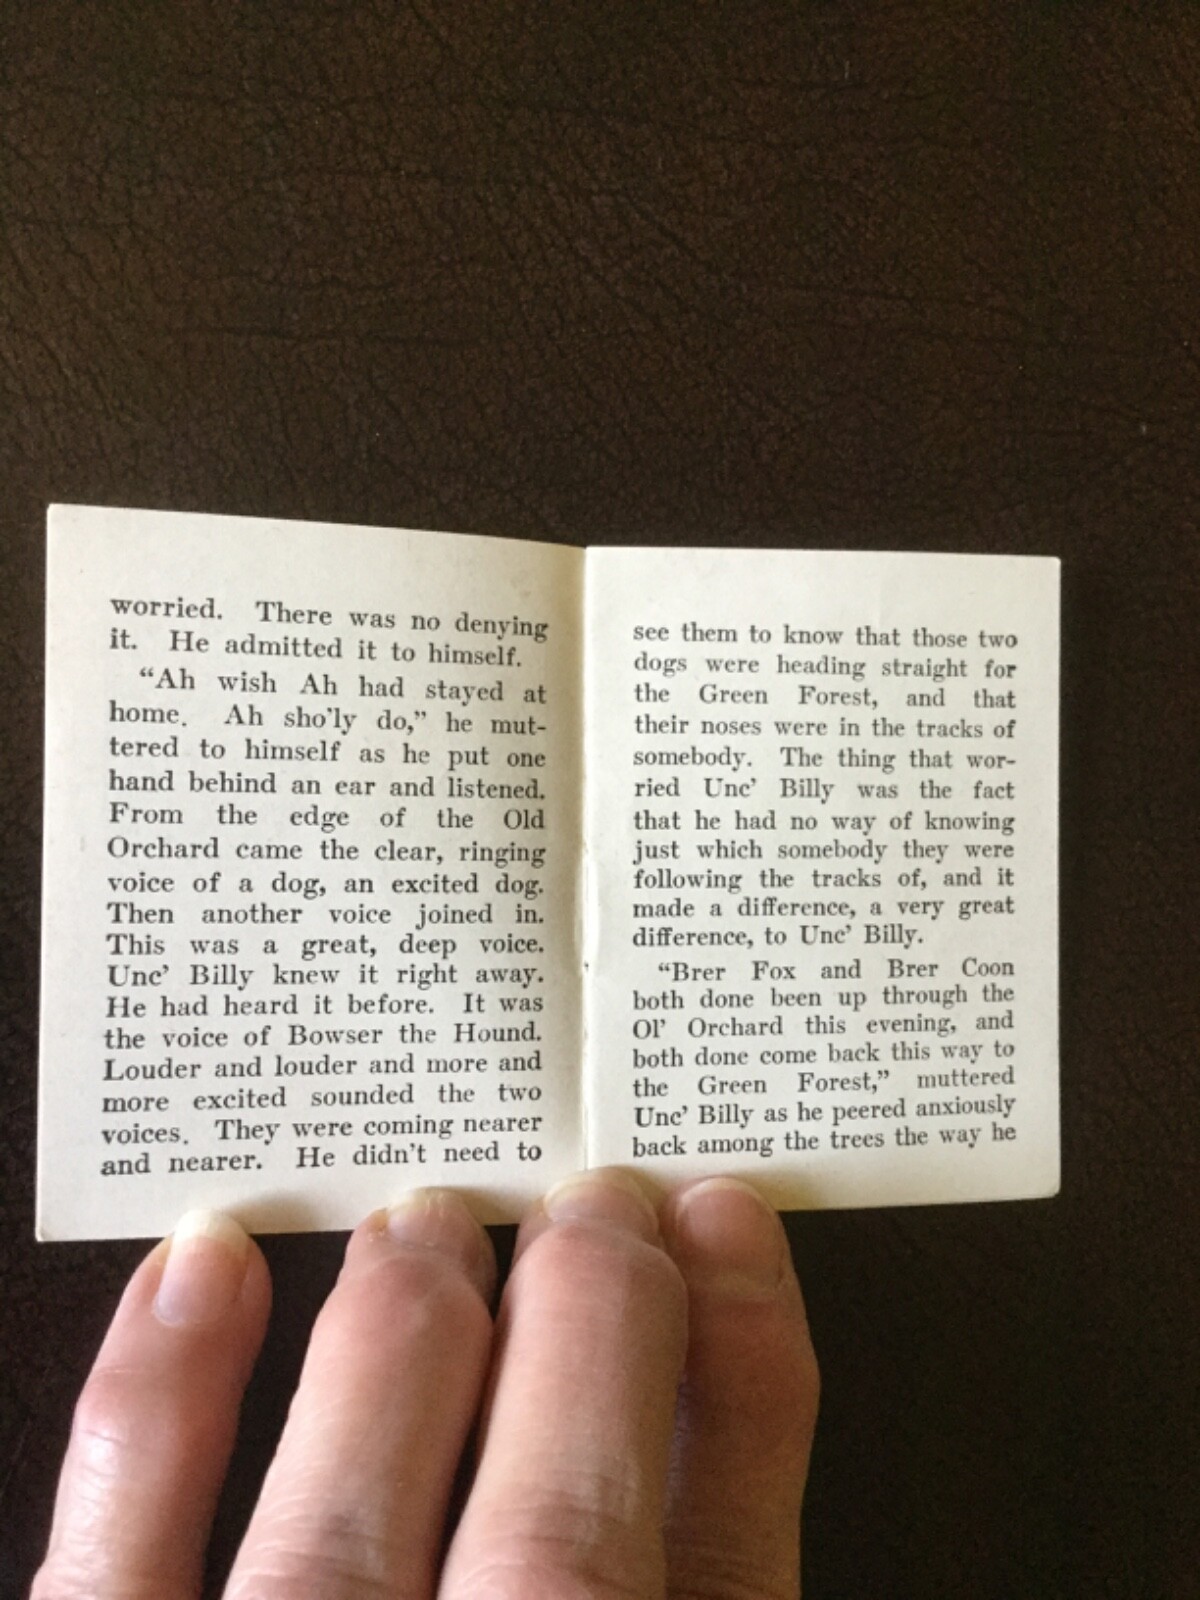 worried. There was no denying
it. He admitted it to himself.
“Ah wish Ah had stayed at
home. Ah sho'ly do,” he mut-
tered to himself as he put one
hand behind an ear and listened.
From the edge of the Old
Orchard came the clear, ringing
voice of a dog, an excited dog.
Then another voice joined in.
This was a great, deep voice.
Unc' Billy knew it right away.
He had heard it before. It was
the voice of Bowser the Hound.
Louder and louder and more and
more excited sounded the two
voices. They were coming nearer
and nearer. He didn't need to
see them to know that those two
dogs were heading straight for
the Green Forest, and that
their noses were in the tracks of
somebody. The thing that wor-
ried Unc' Billy was the fact
that he had no way of knowing
just which somebody they were
following the tracks of, and it
made a difference, a very great
difference, to Unc' Billy.
“Brer Fox and Brer Coon
both done been up through the
Ol' Orchard this evening, and
both done come back this way to
the Green Forest,” muttered
Unc' Billy as he peered anxiously
back among the trees the way he